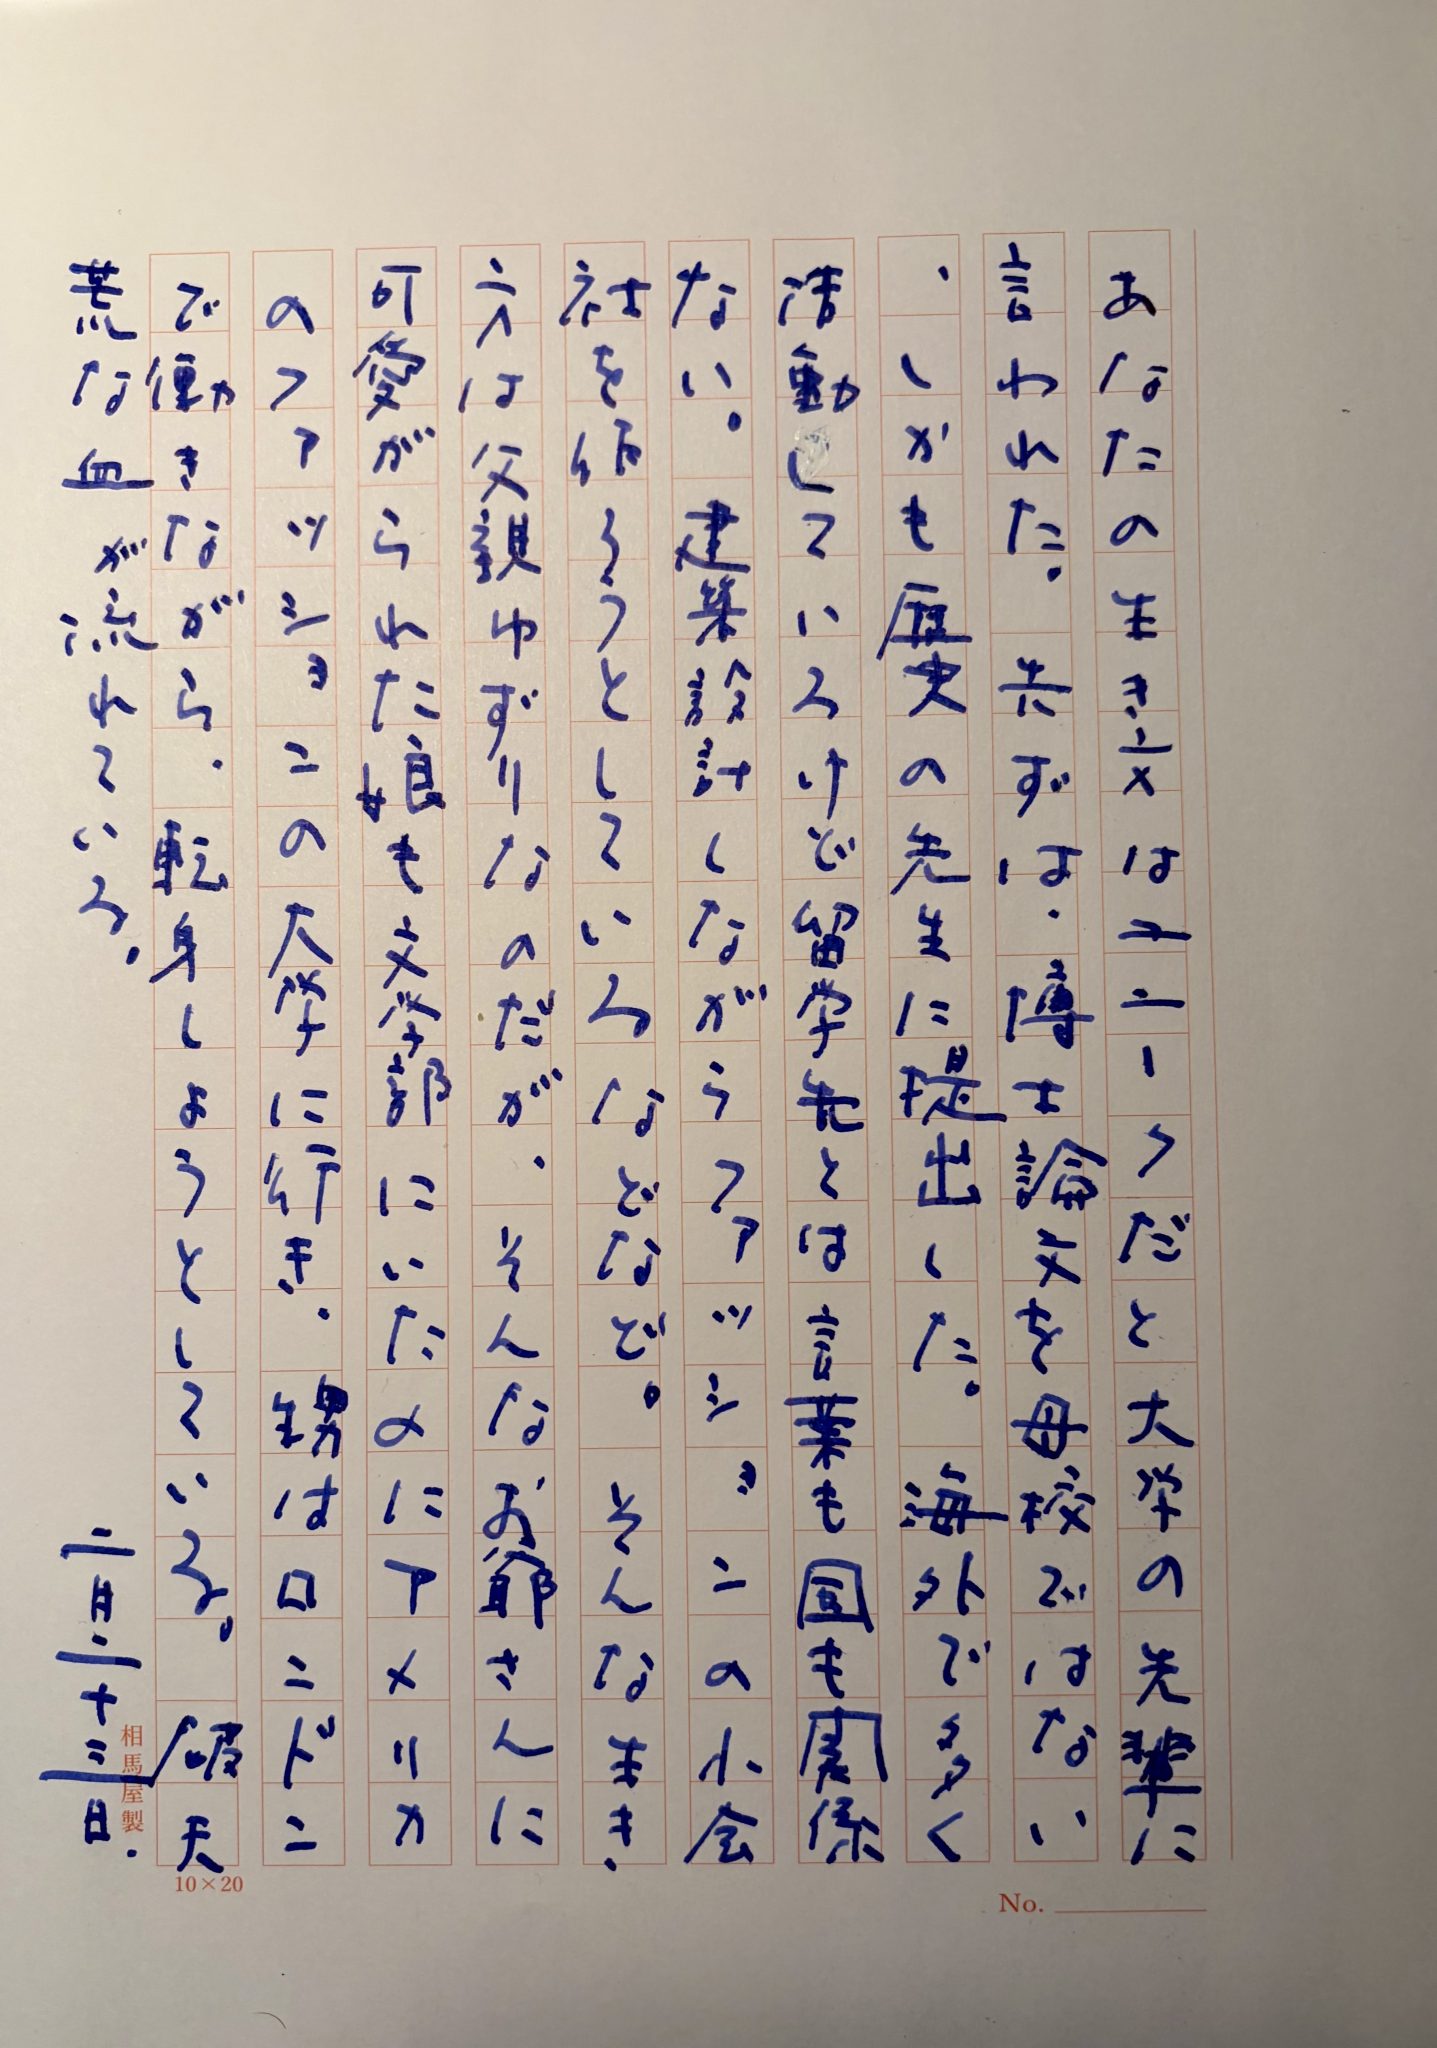 あなたの生き方はユニークだと大学の先輩に
言われた。先ずは、博士論文を母校ではない
、しかも歴史の先生に提出した。海外で多く
活動しているけど留学先とは言葉も国も関係
ない。建築設計しながらファッションの小会
社を作ろうとしているなどなど。そんな生き
方は父親ゆずりなのだが、そんなお爺さんに
可愛がられた娘も文学部にいたのにアメリカ
のファッションの大学に行き、甥はロンドン
で働きながら、転身しようとしている。破天
荒な血が流れている。
二月二十三日.
相馬屋製
10×20
No.